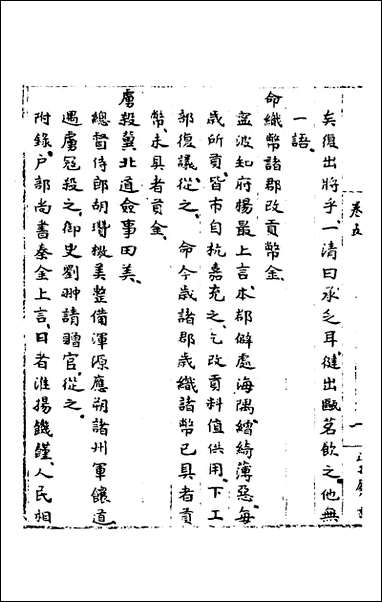 卷五
一
矣復出將乎一清曰承乏耳徤出甌茗飲之他無
一語
命織幣諸郡改貢幣金
寧波知府楊最上言本郡僻處海隅繒綺薄惡每
歲所貢皆市自杭嘉充之乞改貢料值供用下工
部復議從之 命今歲諸郡歲織諸幣已具者貢
幣未具者貢金
虜殺冀北道僉事田美
總督侍郎胡瓚檄美整備渾源應朔諸州軍饟道
遇虜冦殺之御史劉翀請贈官從之
附錄户部尚書秦金上言日者淮揚饑饉人民相